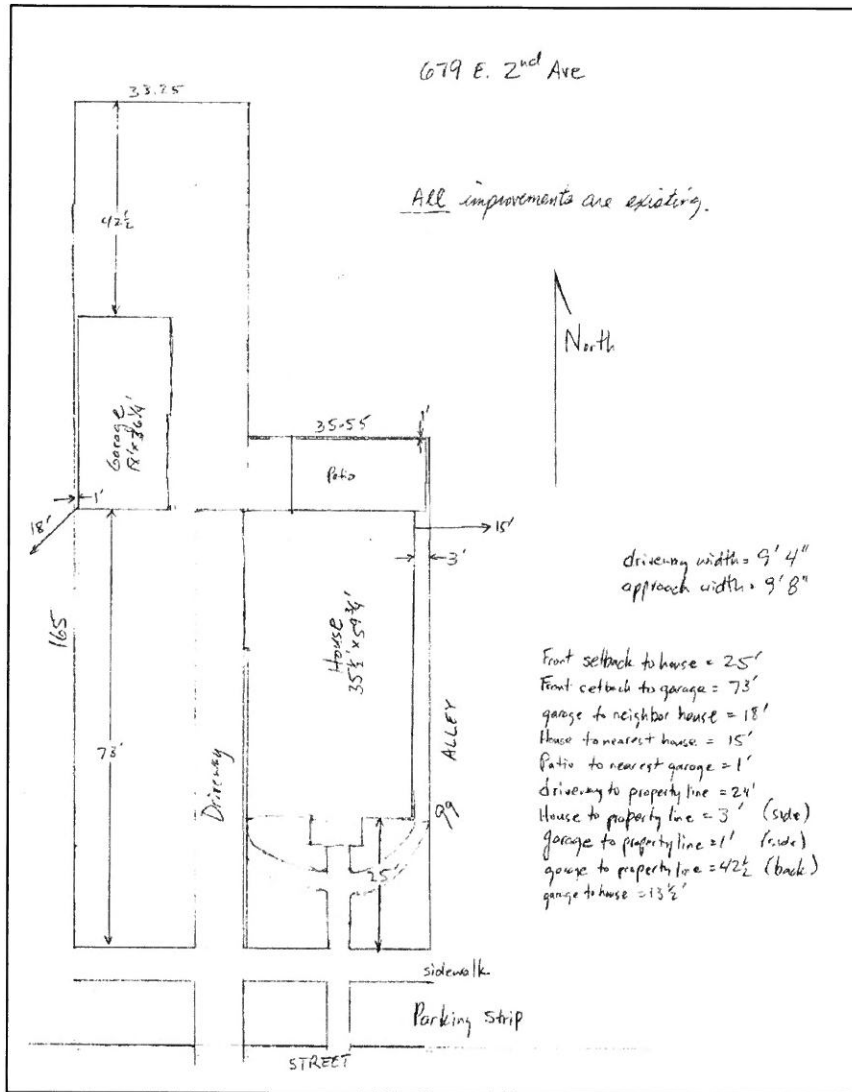 679 E. 2nd Ave
33.25
All improvements are existing.
42½
North
35.55
1'
Garage
Patio
1'
18'
15'
3'
driveway width = 9' 4"
approach width = 9' 8"
165
House
35½' x 59¾'
Front setback to house = 25'
Front setback to garage = 73'
garage to neighbor house = 18'
House to nearest house = 15'
Patio to nearest garage = 1'
driveway to property line = 24'
House to property line = 3' (side)
garage to property line = 1' (side)
garage to property line = 42½ (back)
garage to house = 13½'
73'
Driveway
ALLEY
99
25'
sidewalk
Parking Strip
STREET